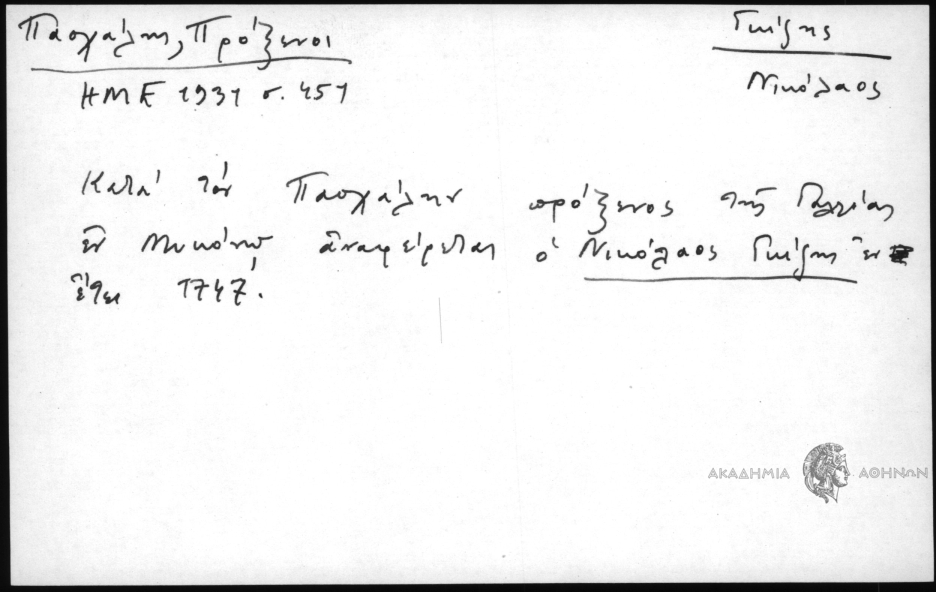 Πασχάλης, Πρόξενοι
Γκίζης
ΗΜΕ 1931 σ. 451
Νικόλαος
Κατά τόν Πασχάλην πρόξενος τῆς Γαλλίας
ἐν Μυκόνῳ ἀναφέρεται ὁ Νικόλαος Γκίζης ἐν
ἔτει 1747.
ΑΚΑΔΗΜΙΑ ΑΘΗΝΩΝ